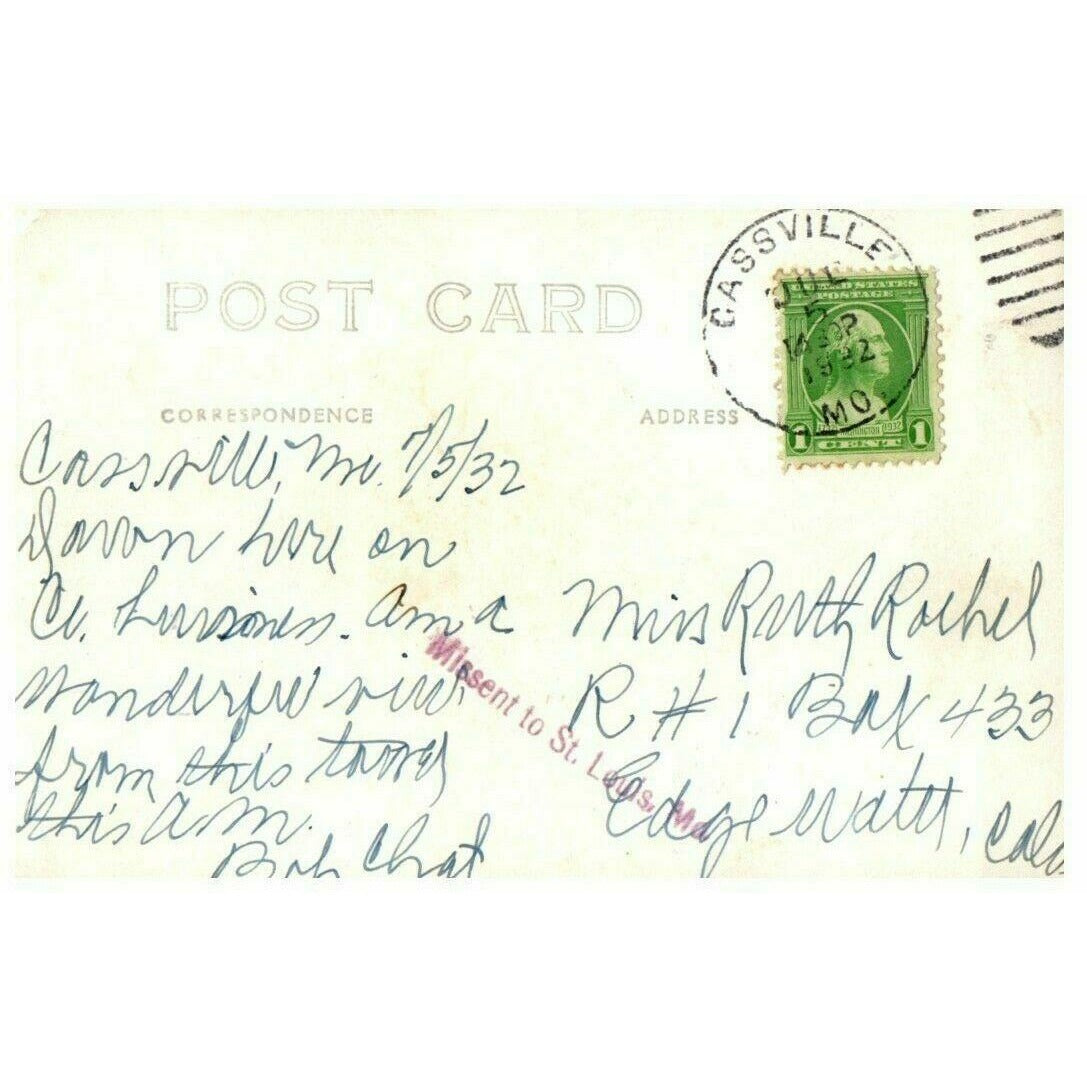 POST CARD
CORRESPONDENCE
ADDRESS
CASSVILLE
JUL
5
1932
MO.
UNITED STATES
POSTAGE
1 CENT 1
Cassville, Mo. 7/5/32
Down here on
Co. business. Am a
wonderful view
from this tower
this A.M.
Bob
Missent to St. Louis, Mo
Miss Ruth Rochel
R #1 Box 433
Edgewater, Colo